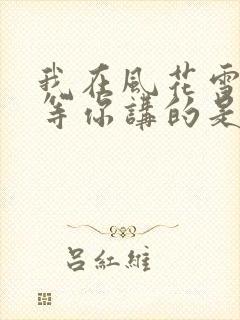 我在風花雪
等你講的是
呂紅維